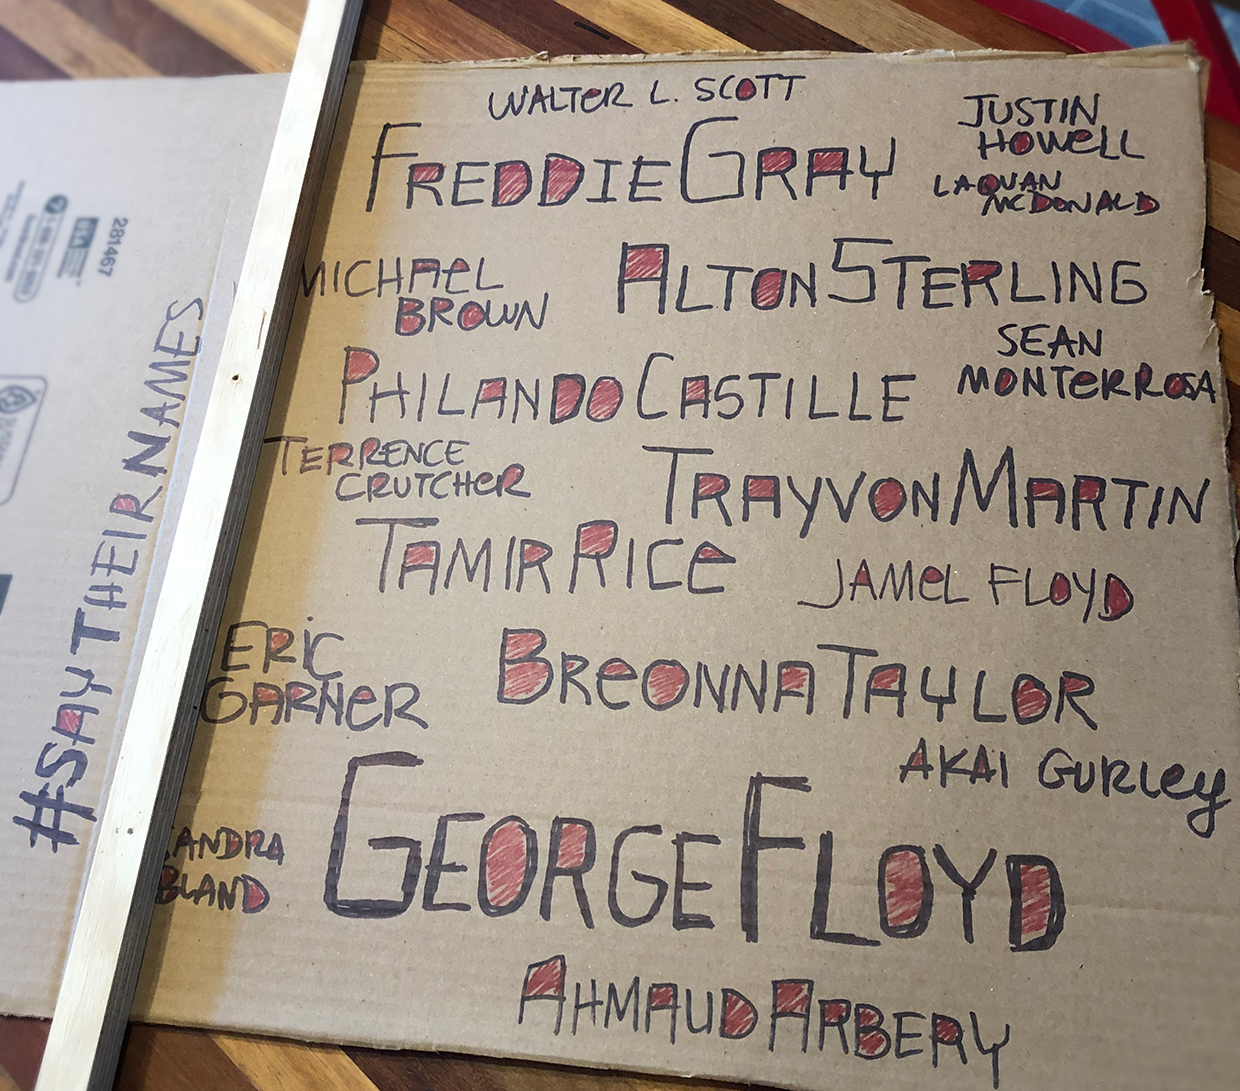 WALTER L. SCOTT
JUSTIN
HOWELL
FREDDIE GRAY
LAQUAN
MCDONALD
MICHAEL
BROWN
ALTON STERLING
SEAN
MONTERROSA
PHILANDO CASTILLE
TERRENCE
CRUTCHER
TRAYVON MARTIN
TAMIR RICE
JAMEL FLOYD
ERIC
GARNER
BREONNA TAYLOR
AKAI GURLEY
GEORGE FLOYD
SANDRA
BLAND
AHMAUD ARBERY
#SAY THEIR NAMES
281467